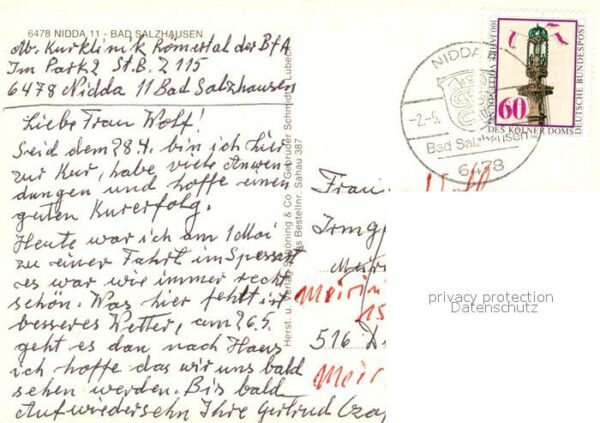 6478 NIDDA 11 - BAD SALZHAUSEN
Ab. Kurklinik Römertal der BfA
Im Park 2 St.B. Z 115
6478 Nidda 11 Bad Salzhausen
Liebe Frau Wolf!
Seid dem 28.4. bin ich hir
zur Kur, habe viele Anwen
dungen und hoffe einen
guten Kurerfolg.
Heute war ich am 1 Mai
zu einer Fahrt im Spessart
es war wie immer recht
schön. Was hier fehlt ist
besseres Wetter, am 26.5.
geht es dan nach Haus
ich hoffe das wir uns bald
sehen werden. Bis bald
Auf wiedersehn Ihre Gertrud
Herst. u. Verlag Schöning & Co Gebrüder Schmidt, Lübeck
Bestellnr. Sahau 387
NIDDA
-2.-5.
Bad Salzhausen
6478
60
DES KÖLNER DOMS
DEUTSCHE BUNDESPOST
Frau Wolf
516
privacy protection
Datenschutz